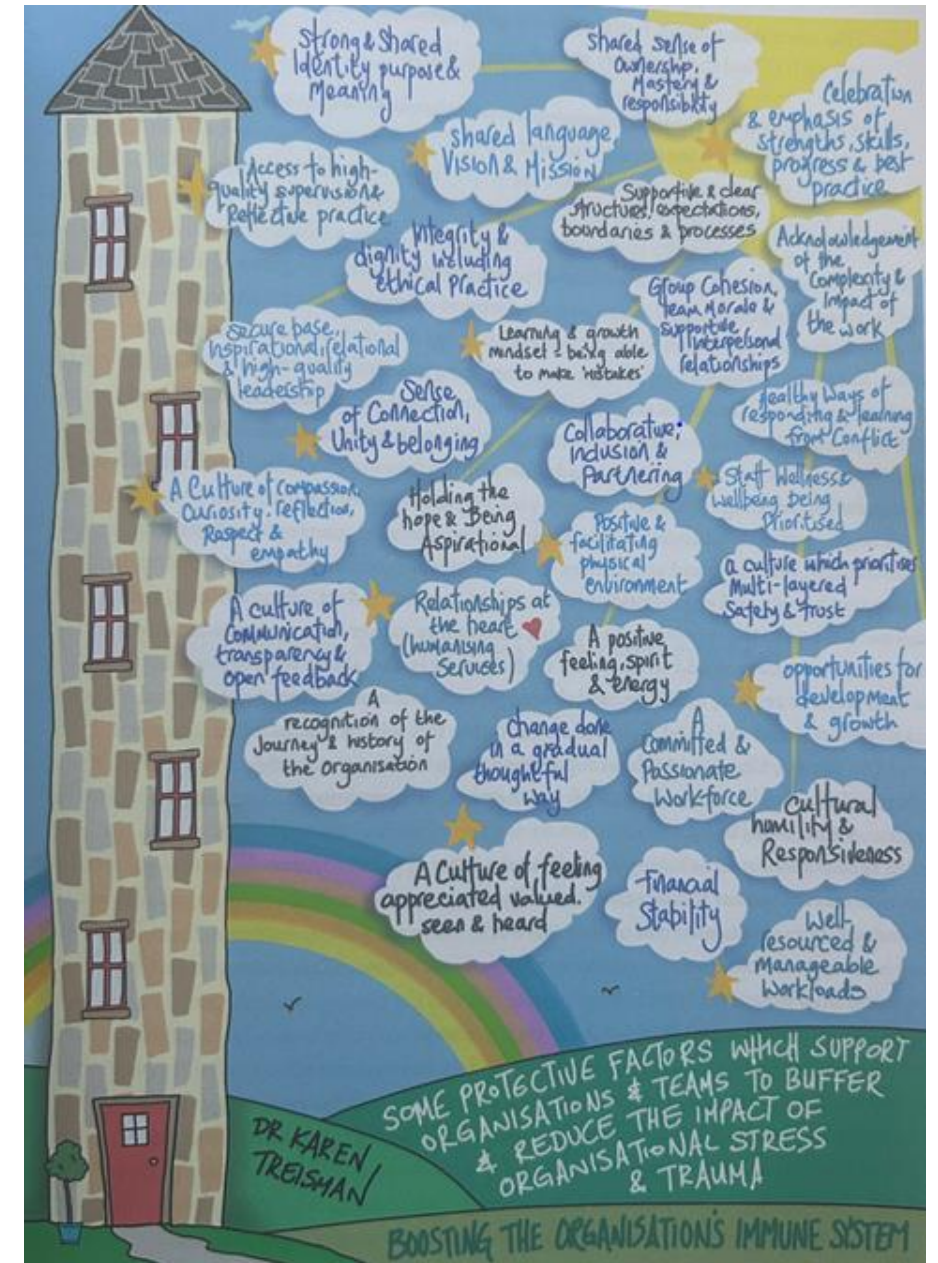 Strong & Shared
Identity purpose &
Meaning
Shared sense of
Ownership,
Mastery &
responsibility
Celebration
& emphasis of
strengths, skills,
progress & best
practice
Shared language,
Vision & Mission
Access to high-
quality supervision &
Reflective practice
Supportive & clear
structures, expectations,
boundaries & processes
Integrity &
dignity including
ethical Practice
Acknowledgement
of the
Complexity &
Impact of
the work
Group Cohesion,
Team Morale &
Supportive
Interpersonal
relationships
Secure base,
inspirational, relational
& high-quality
leadership
Learning & growth
mindset - being able
to make 'mistakes'
Sense
of Connection,
Unity & belonging
Healthy Ways of
responding & learning
from Conflict
Collaborative,
inclusion &
Partnering
A Culture of compassion,
Curiosity, reflection,
Respect &
empathy
Holding the
hope & Being
Aspirational
Staff Wellness &
wellbeing being
Prioritised
Positive &
facilitating
physical
environment
a culture which prioritises
Multi-layered
Safety & trust
A culture of
Communication,
transparency &
open feedback
Relationships at
the heart
(humanising
Services)
A positive
feeling, spirit
& energy
opportunities for
development
& growth
A
recognition of the
Journey & history of
the organisation
Change done
in a gradual
thoughtful
way
A
Committed &
Passionate
Workforce
Cultural
humility &
Responsiveness
A Culture of feeling
appreciated valued.
seen & heard
Financial
Stability
Well-
resourced &
manageable
Workloads
SOME PROTECTIVE FACTORS WHICH SUPPORT
ORGANISATIONS & TEAMS TO BUFFER
& REDUCE THE IMPACT OF
ORGANISATIONAL STRESS
& TRAUMA
DR KAREN
TREISMAN
BOOSTING THE ORGANISATION'S IMMUNE SYSTEM